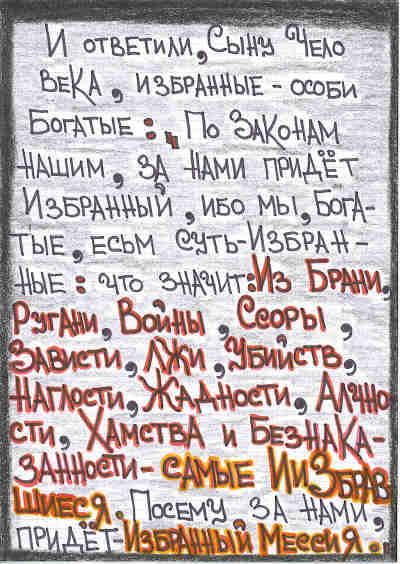 И ответили, Сыну Чело
века, избранные - особи
Богатые :, „ По Законам
нашим, за нами придёт
Избранный, ибо мы, Бога-
тые, есьм суть-Избран-
ные : что значит: Из Брани,
Ругани, Войны, Ссоры,
Зависти, Лжи, Убийств,
Наглости, Жадности, Алчно
сти, Хамства и Безнака-
занности - самые ИиЗбрав
шиеся. Посему, за нами,
придёт - Избранный Мессия.„